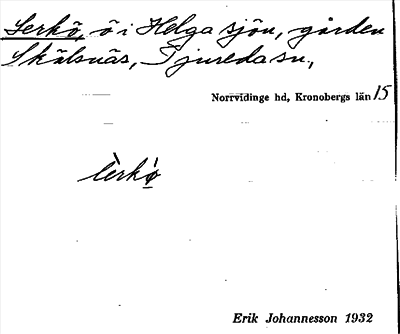 Lerkö, ö i Helgasjön, gården
Skälsnäs, Tjureda sn,
Norrvidinge hd, Kronobergs län 15
lèrkø̀
Erik Johannesson 1932